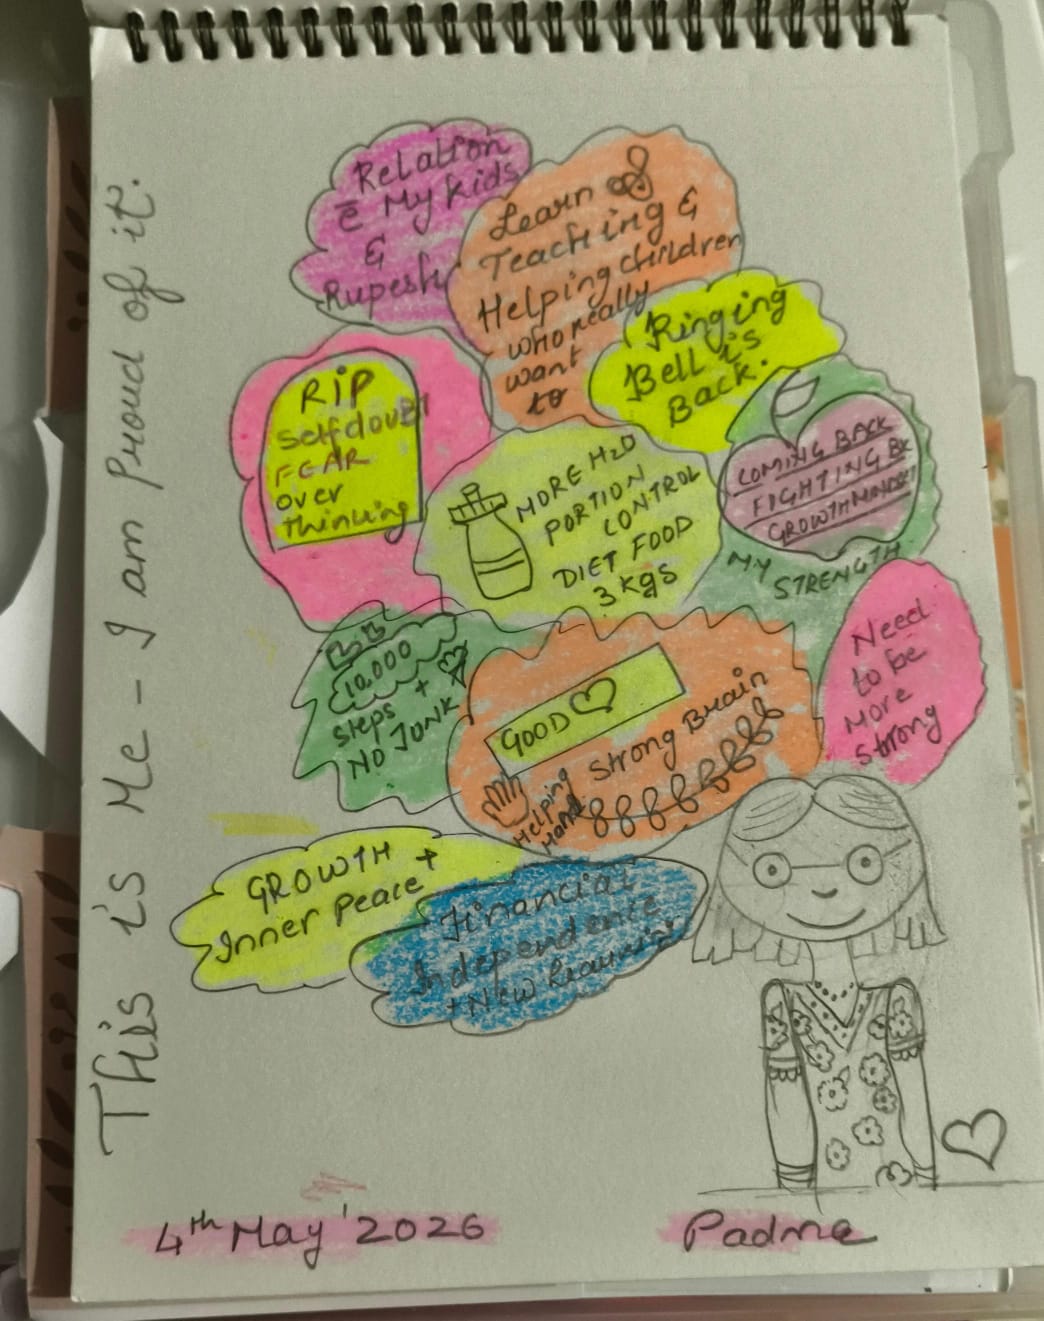 This is Me - I am Proud of it.
Relation
c̄ My kids
&
Rupesh
Learn
Teaching &
Helping children
who really
want
to
Ringing
Bell is
Back.
RIP
Selfdoubt
FEAR
over
thinking
MORE H2O
PORTION
CONTROL
DIET FOOD
3 kgs
COMING BACK
FIGHTING BK
GROWTH MINDSET
MY STRENGTH
10,000
steps +
NO JUNK
GOOD
Strong Brain
Helping
Hand
Need
to be
More
Strong
GROWTH +
Inner Peace
Financial
Independence
+ New Learning
4th May' 2026
Padma